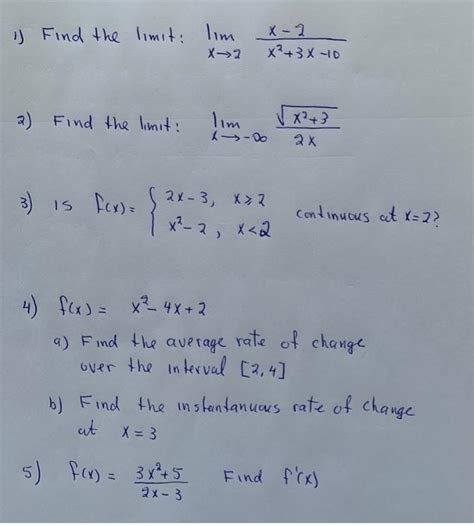 1) Find the limit: lim x→2 x-2 / x²+3x-10
2) Find the limit: lim x→-∞ √x²+3 / 2x
3) Is f(x) = { 2x-3, x≥2
x²-2, x<2 continuous at x=2?
4) f(x) = x²-4x+2
a) Find the average rate of change
over the interval [2,4]
b) Find the instantanuous rate of change
at x=3
5) f(x) = 3x²+5 / 2x-3 Find f'(x)